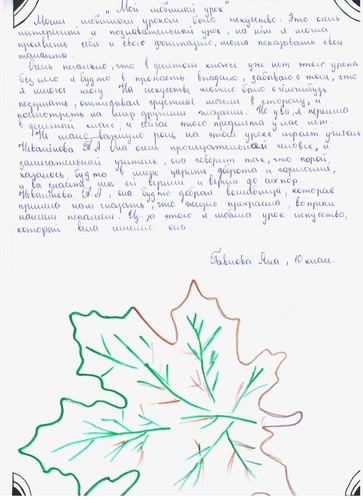 "Мой любимый урок"
Моим любимым уроком было искусство. Это очень
интересный и познавательный урок, на нём я могла
проявить себя и свою фантазию, могла показывать свои
таланты.
Очень печально, что в десятом классе уже нет этого урока
без него я будто в пропасть впадаю, забываю о том, что
я многое могу. На искусстве можно было о чём-нибудь
послушать, откидывая грустные мысли в сторону, и
посмотреть на мир другими глазами. Но увы, я перешла
в десятый класс, и сейчас этого предмета у нас нет.
Не мало важную роль на этом уроке играет учитель
Иванникова Т.А. Она очень проницательный человек, и
замечательный учитель, она говорит так, что порой,
казалось, будто в мире царит доброта и гармония,
и вы знаете, мы ей верили и верим до сих пор.
Иванникова Т.А., она будто добрая волшебница, которая
пришла нам сказать, что жизнь прекрасна, вопреки
нашим печалям. Из-за этого я любила урок искусства,
который вела именно она.
Павлова Яна, 10 класс.